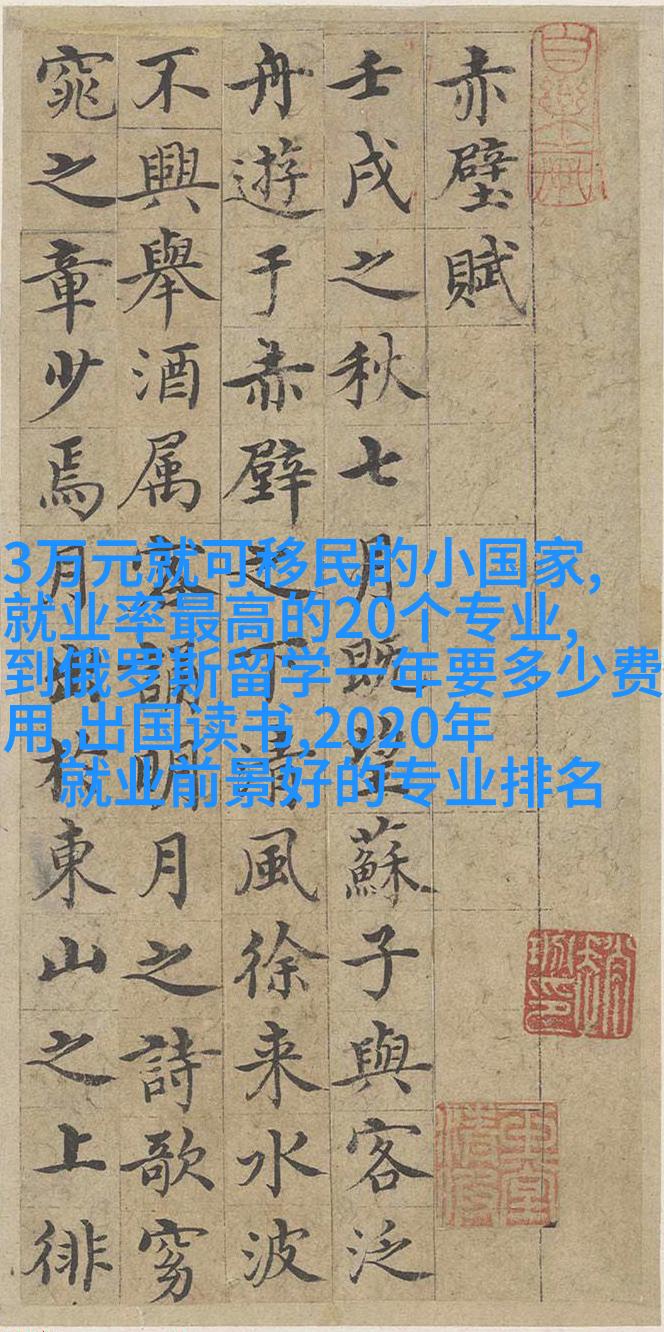 赤壁賦
壬戌之秋七月既望蘇子與客泛
舟遊于赤壁之下清風徐来水波
不興舉酒属客誦明月之詩歌窈
窕之章少焉月出於東山之上徘
3万元就可移民的小国家,
就业率最高的20个专业,
到俄罗斯留学一年要多少费
用,出国读书,2020年
就业前景好的专业排名